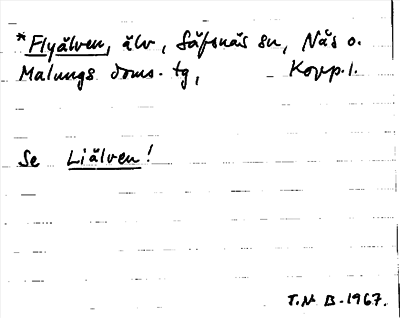 *Flyälven, älv, Säfsnäs sn, Nås o.
Malungs doms. tg, Kopp. l.
Se Liälven!
T.N.B. 1967.